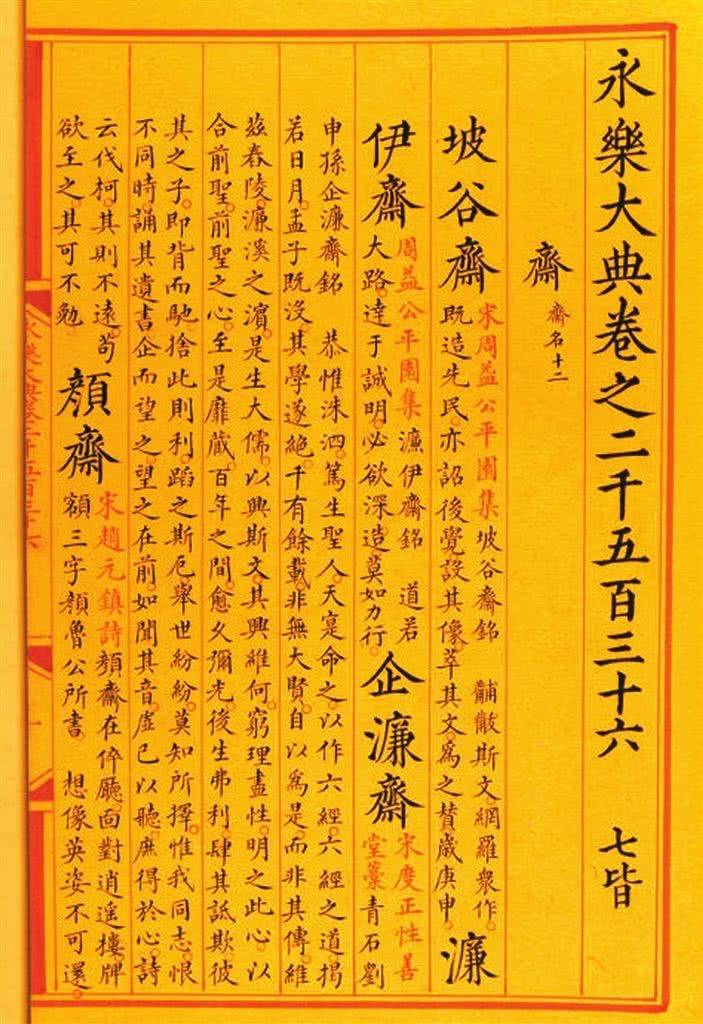 永樂大典卷之二千五百三十六 七皆
齋 齋名十二
坡谷齋
宋周益公平園集坡谷齋銘 黼黻斯文網羅衆作
既造先民亦詔後覺設其像萃其文爲之贊歲庚申
濂
伊齋
周益公平園集 濂伊齋銘 道若
大路達于誠明必欲深造莫如力行
企濂齋
宋度正性善
堂藁青石劉
申孫企濂齋銘 恭惟洙泗篤生聖人天寔命之以作六經六經之道揭
若日月孟子既没其學遂絶千有餘載非無大賢自以爲是而非其傳維
兹舂陵濂溪之濵是生大儒以興斯文其興維何窮理盡性明之此心以
合前聖前聖之心至是靡蔵百年之間愈乆彌光後生弗利肆其詆欺彼
其之子即背而馳捨此則利蹈之斯厄舉世紛紛莫知所擇惟我同志恨
不同時誦其遺書企而望之望之在前如聞其音虚已以聽庶得於心詩
云伐柯其則不遠苟
欲至之其可不勉
顔齋
宋趙元鎮詩顔齋在倅廳面對逍遥樓牌
額三字顔魯公所書 想像英姿不可還
永樂大典卷二千五百三十六
一